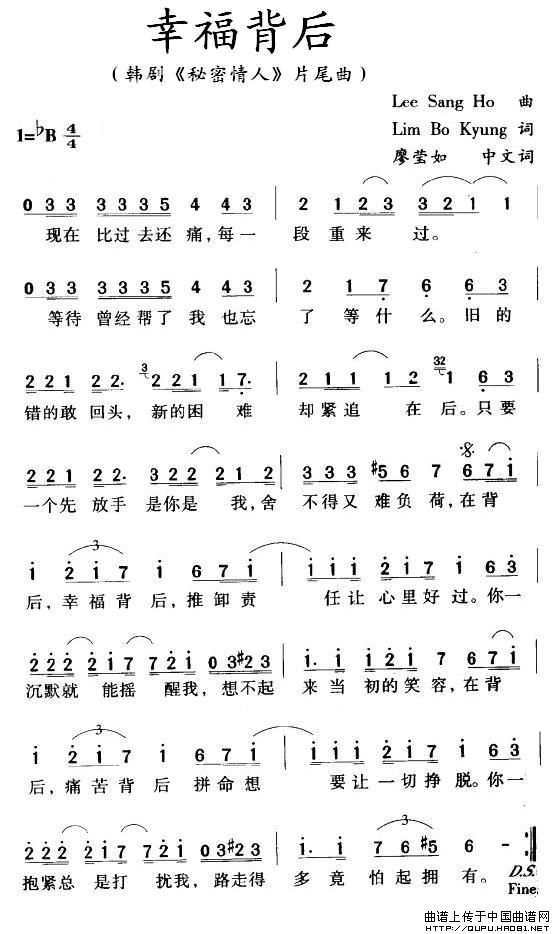 幸福背后
(韩剧《秘密情人》片尾曲)
Lee Sang Ho 曲
1=♭B 4/4 Lim Bo Kyung 词
廖莹如 中文词
0 3 3 3 3 3 5 4 4 3 | 2 1 2 3 3 2 1 1
现在 比过去还痛,每一 段重来 过。
0 3 3 3 3 3 5 4 4 3 | 2 1 7 6 6 3
等待 曾经帮了 我也忘 了等什么。旧的
2 2 1 2 2. 3 2 2 1 1 7. | 2 1 1 1 2 32 1 6 3
错的敢 回头, 新的困 难 却紧追 在后。只要
2 2 1 2 2. 3 2 2 2 1 2 | 3 3 3 #5 6 7 6 7 1
一个先 放手 是你是 我,舍 不得又 难负荷,在背
3
1 2 1 7 1 6 7 1 | 1 1 1 2 1 7 1 6 3
后,幸福背 后,推卸责 任让心里好过。你一
2 2 2 2 1 7 7 2 1 0 3 #2 3 | 1. 1 1 2 1 7 6 7 1
沉默就 能摇 醒我,想不起 来当 初的笑容,在背
3
1 2 1 7 1 6 7 1 | 1 1 1 2 1 7 1 6 3
后,痛苦背后 拼命想 要让一切挣脱。你一
3
2 2 2 2 1 7 7 2 1 0 3 #2 3 | 2 1 7 6 #5 6 - :‖
抱紧总 是打 扰我,路走得 多竟 怕起拥有。 D.S.
Fine.
曲谱上传于中国曲谱网
HTTP://QUPU.HAO81.NET